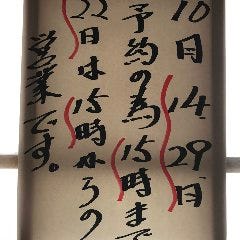 10月14、29日
予約の為15時まで
22日は15時からの
営業です。